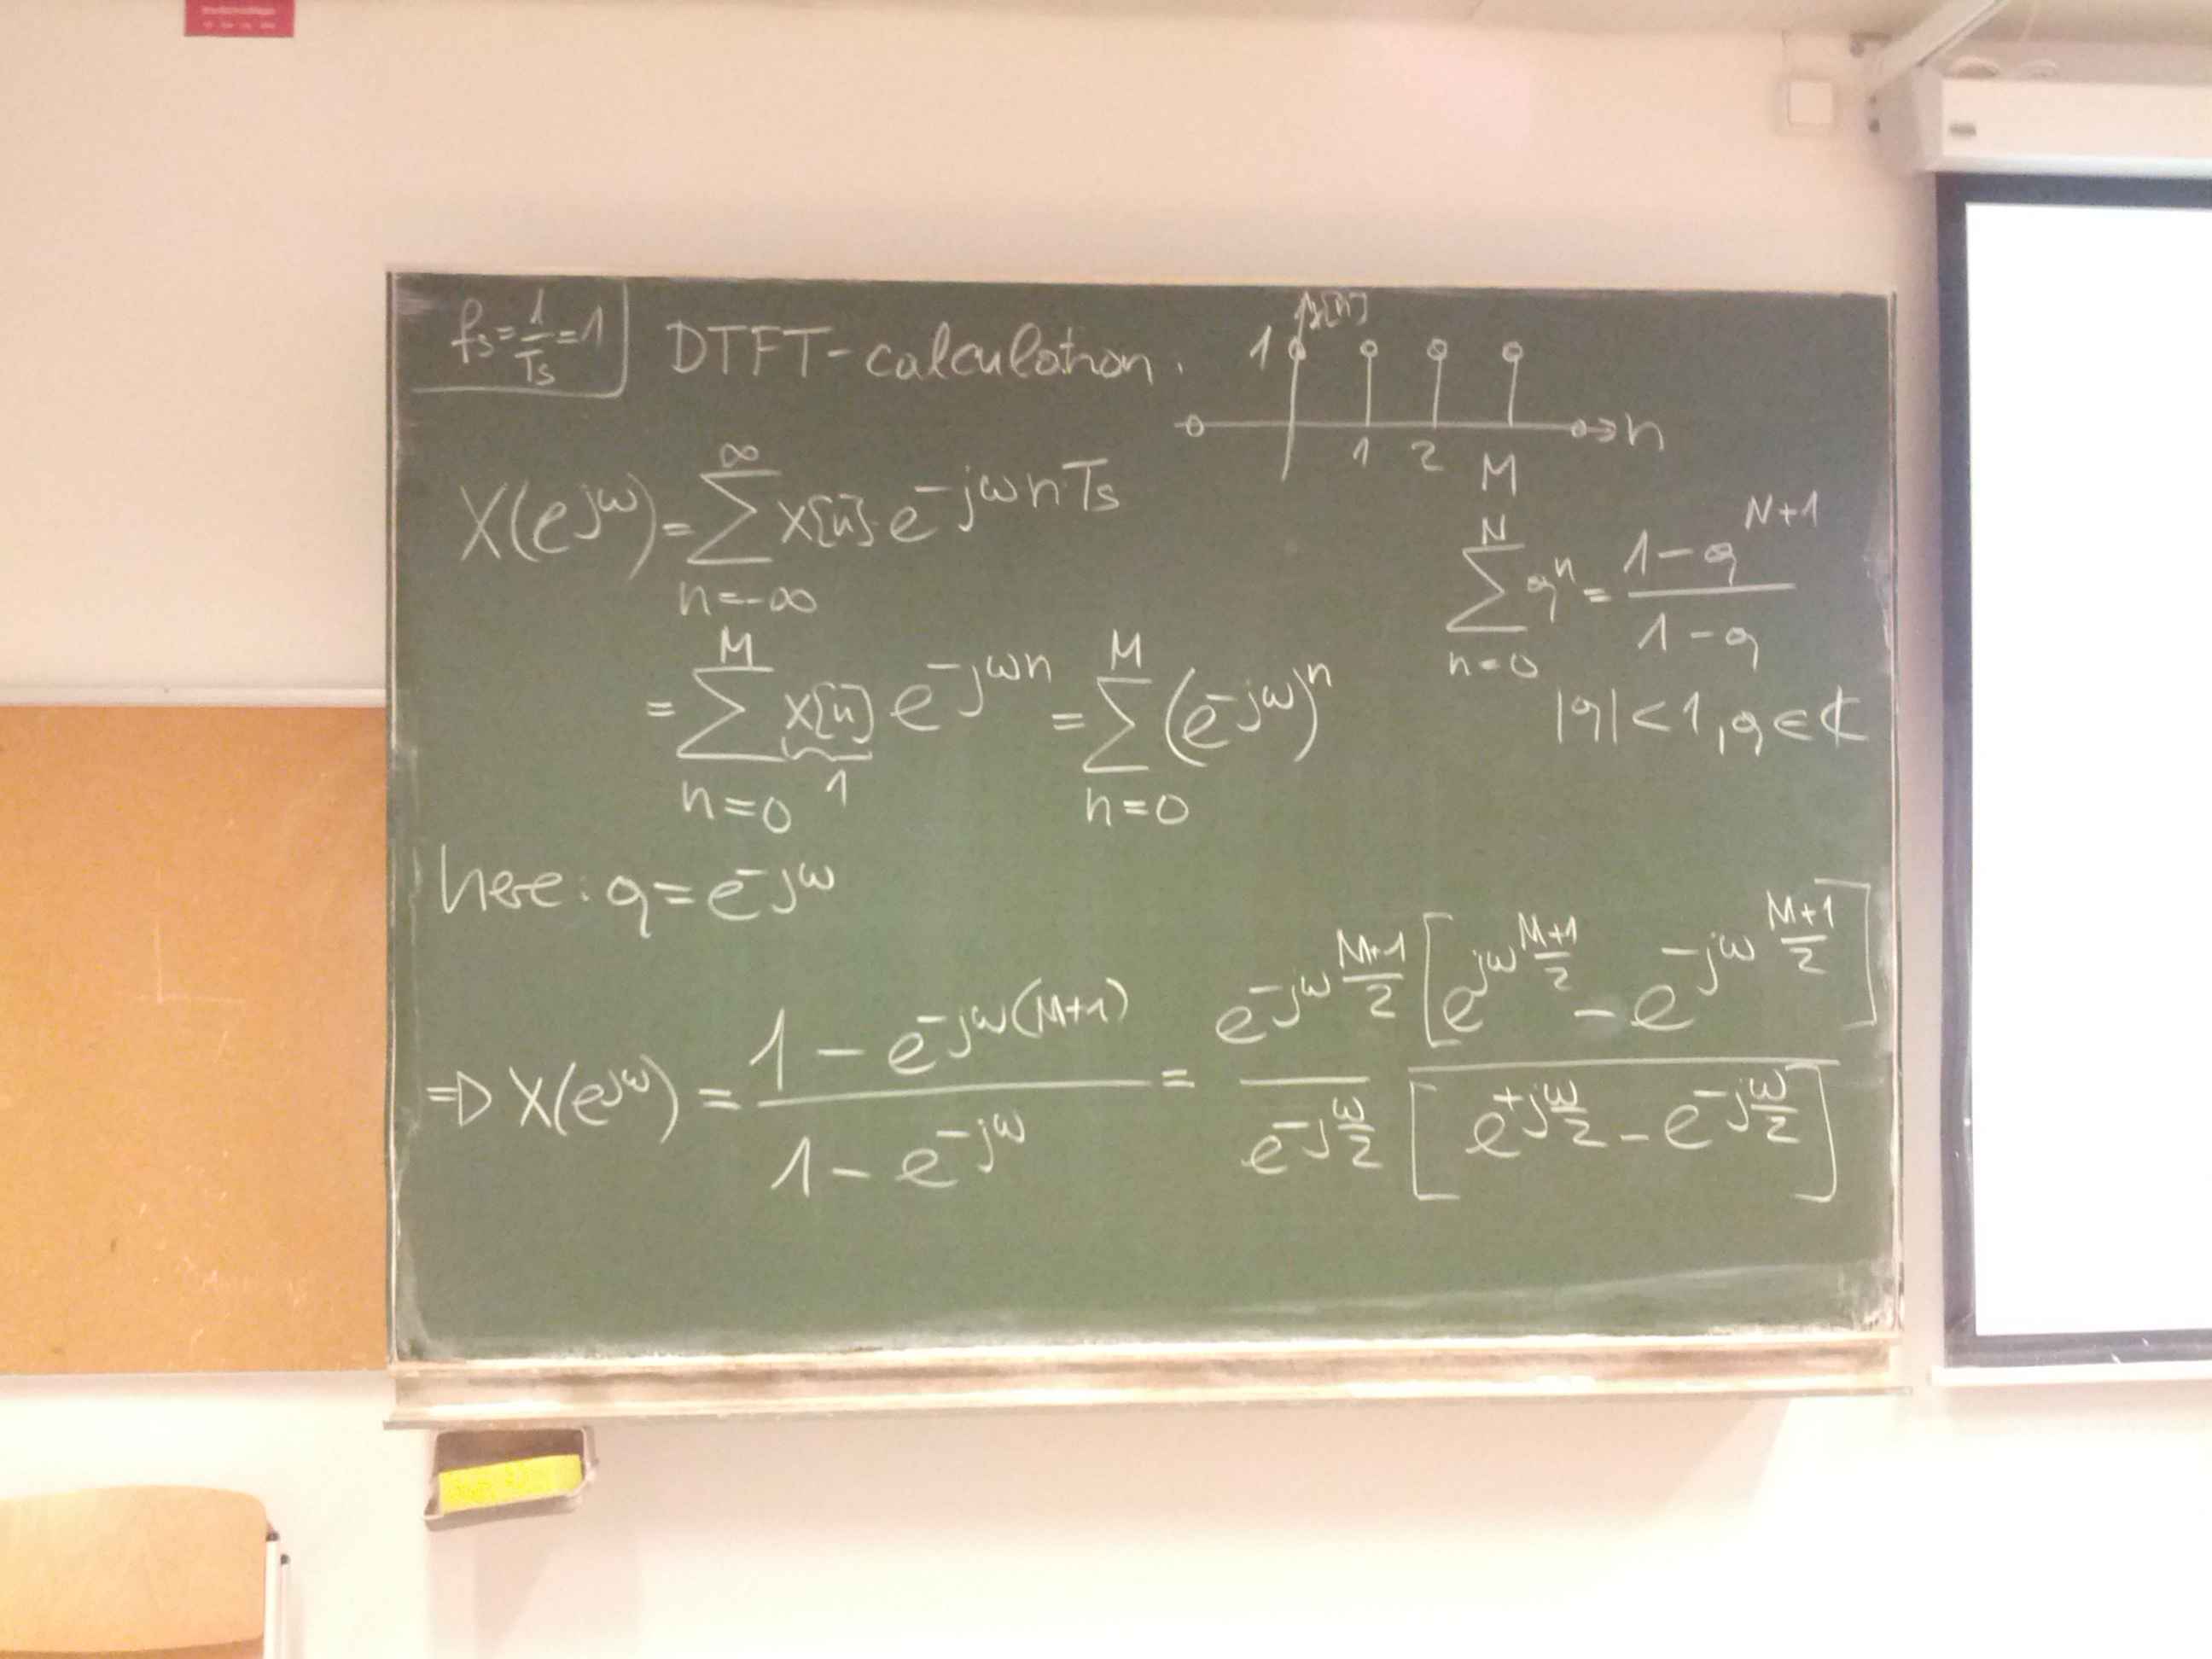 fs = 1/Ts = 1
DTFT-calculation.
1
x[n]
n
1 2 M
X(e^{jω}) = ∑_{n=-∞}^{∞} x[n] · e^{-jωn·Ts}
∑_{n=0}^{N} q^n = (1 - q^{N+1})/(1 - q)
= ∑_{n=0}^{M} x[n] e^{-jωn} = ∑_{n=0}^{M} (e^{-jω})^n
1
|q| < 1, q ∈ ℂ
here: q = e^{-jω}
⇒ X(e^{jω}) = (1 - e^{-jω(M+1)})/(1 - e^{-jω}) = (e^{-jω (M+1)/2} [e^{jω (M+1)/2} - e^{-jω (M+1)/2}])/(e^{-j ω/2} [e^{+j ω/2} - e^{-j ω/2}])